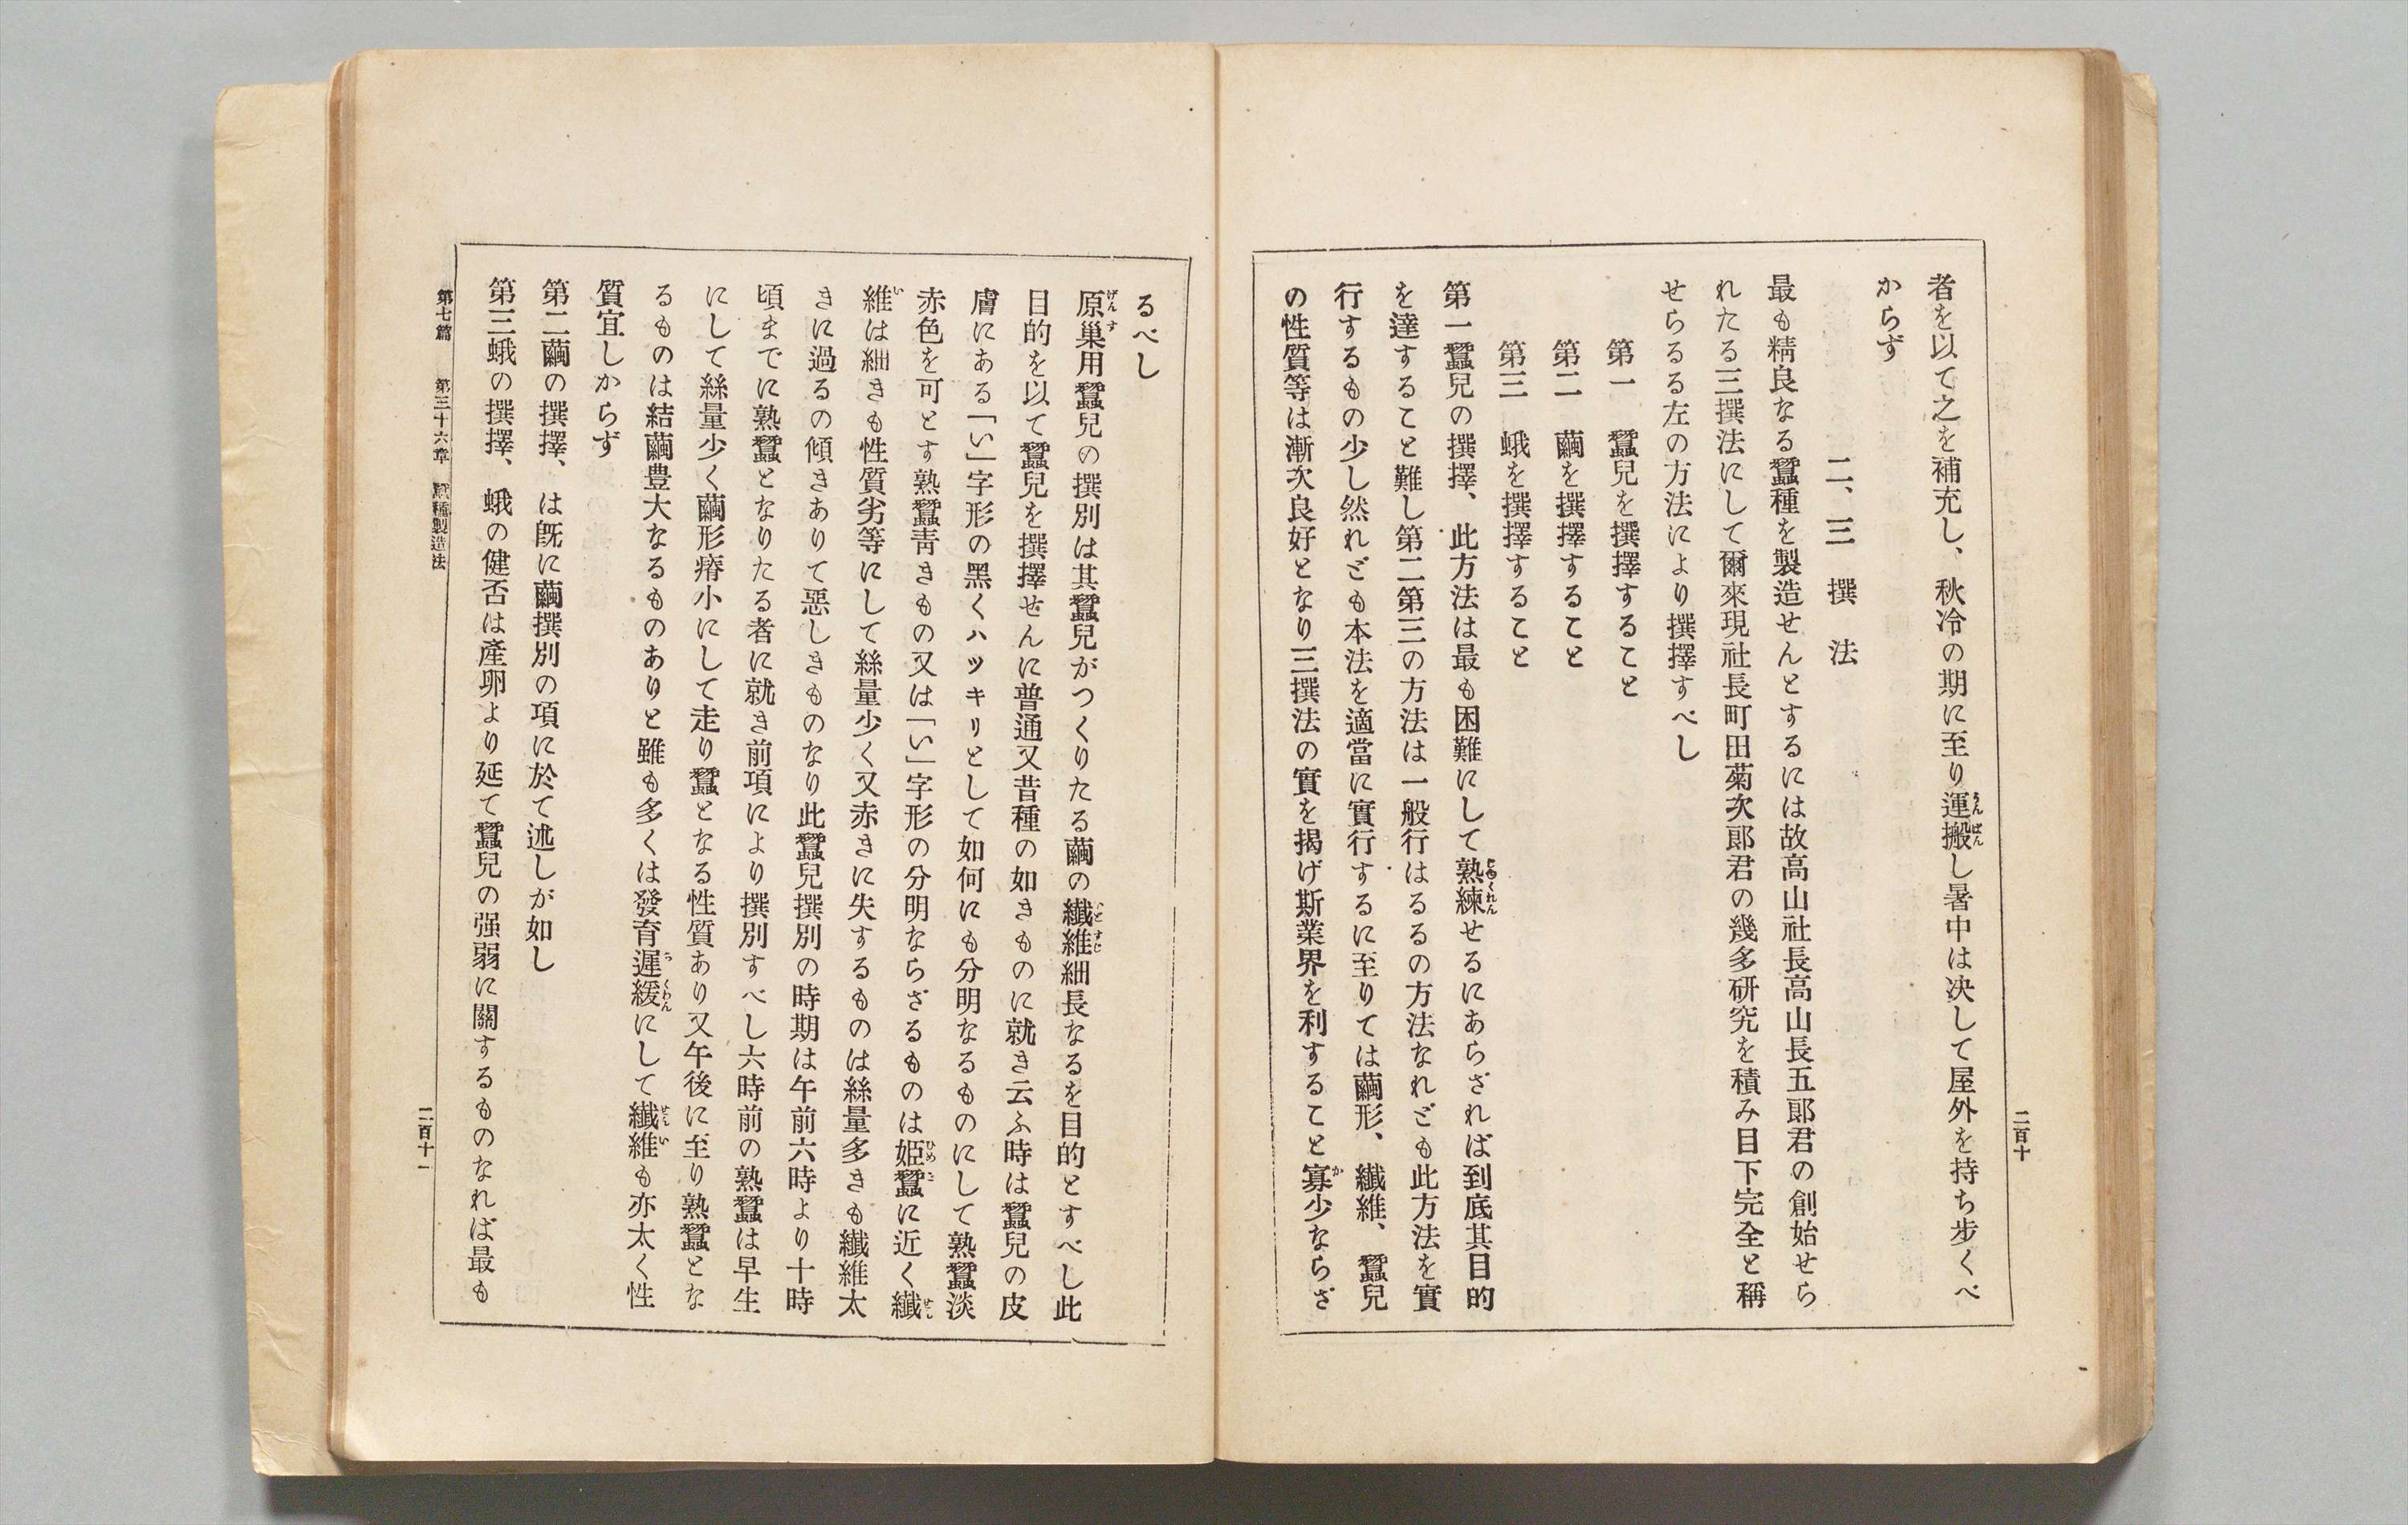 者を以て之を補充し、秋冷の期に至り運搬し暑中は決して屋外を持ち歩くべ
からず
二、三撰法
最も精良なる蠶種を製造せんとするには故高山社長高山長五郞君の創始せら
れたる三撰法にして爾來現社長町田菊次郞君の幾多研究を積み目下完全と稱
せらるる左の方法により撰擇すべし
第一　蠶兒を撰擇すること
第二　繭を撰擇すること
第三　蛾を撰擇すること
第一蠶兒の撰擇、此方法は最も困難にして熟練せるにあらざれば到底其目的
を達すること難し第二第三の方法は一般行はるるの方法なれども此方法を實
行するもの少し然れども本法を適當に實行するに至りては繭形、纖維、蠶兒
の性質等は漸次良好となり三撰法の實を揭げ斯業界を利すること寡少ならざ
二百十
るべし
原巢用蠶兒の撰別は其蠶兒がつくりたる繭の纖維細長なるを目的とすべし此
目的を以て蠶兒を撰擇せんに普通又昔種の如きものに就き云ふ時は蠶兒の皮
膚にある「い」字形の黑くハッキリとして如何にも分明なるものにして熟蠶淡
赤色を可とす熟蠶靑きもの又は「い」字形の分明ならざるものは姬蠶に近く纖
維は細きも性質劣等にして絲量少く又赤きに失するものは絲量多きも纖維太
きに過るの傾きありて惡しきものなり此蠶兒撰別の時期は午前六時より十時
頃までに熟蠶となりたる者に就き前項により撰別すべし六時前の熟蠶は早生
にして絲量少く繭形瘠小にして走り蠶となる性質あり又午後に至り熟蠶とな
るものは結繭豊大なるものありと雖も多くは發育遲緩にして纖維も亦太く性
質宜しからず
第二繭の撰擇、は旣に繭撰別の項に於て述しが如し
第三蛾の撰擇、蛾の健否は產卵より延て蠶兒の强弱に關するものなれば最も
第七篇　第三十六章　蠶種製造法
二百十一